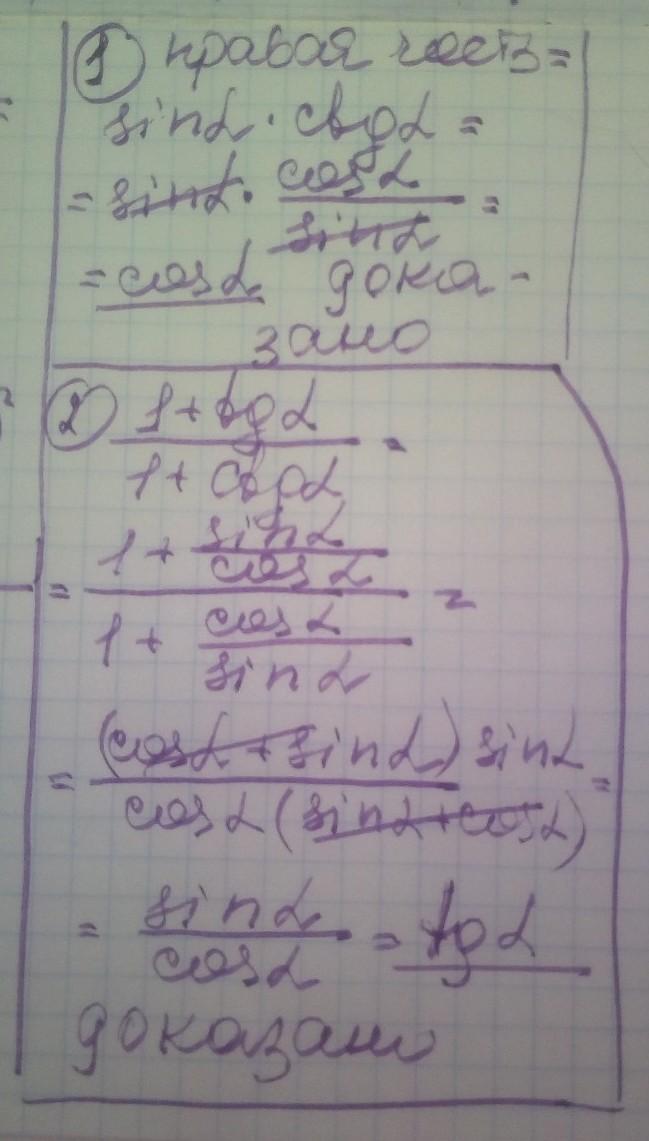 1 правая часть =
sinα · ctgα =
= sinα · cosα / sinα =
= cosα дока-
зано
2 1 + tgα / 1 + ctgα =
= 1 + sinα / cosα / 1 + cosα / sinα =
= (cosα + sinα) sinα / cosα (sinα + cosα) =
= sinα / cosα = tgα
доказано